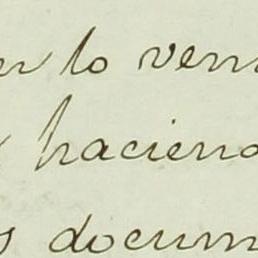 er lo ven
hacien
s docum